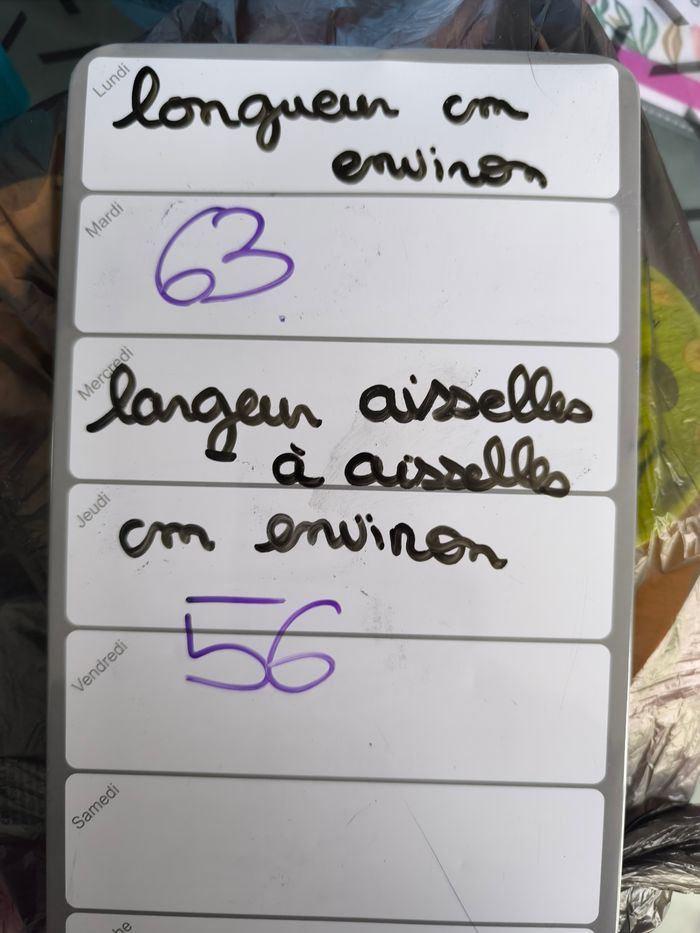 Lundi
longueur cm
environ
Mardi
63
Mercredi
largeur aisselles
à aisselles
Jeudi
cm environ
56
Vendredi
Samedi
he